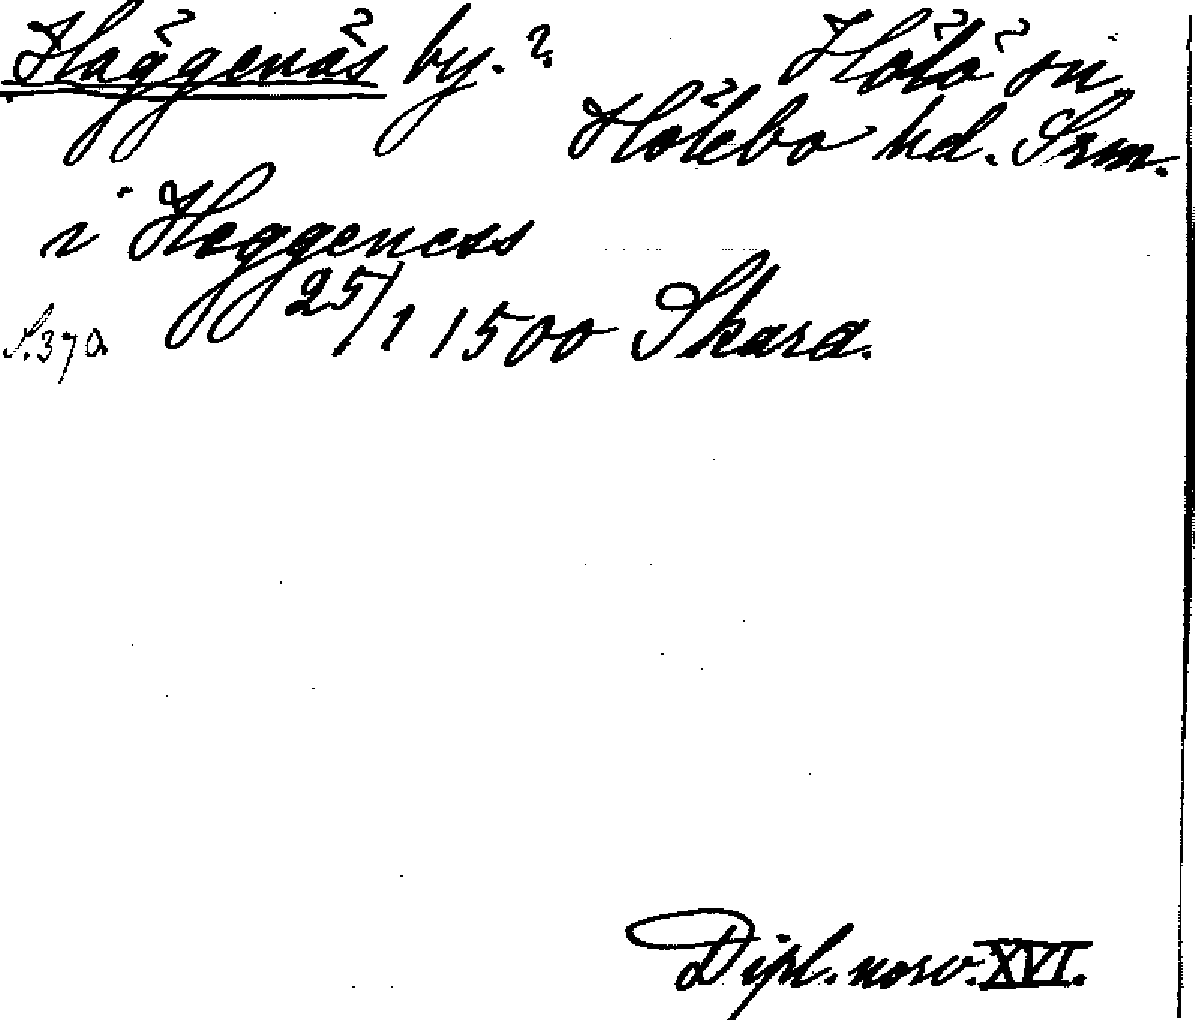 Häggenäs by. ? Hölö sn,
Hölebo hd. Srm.
i Heggeness
25/1 1500 Skara.
S. 37 a
Dipl. norv. XVI.